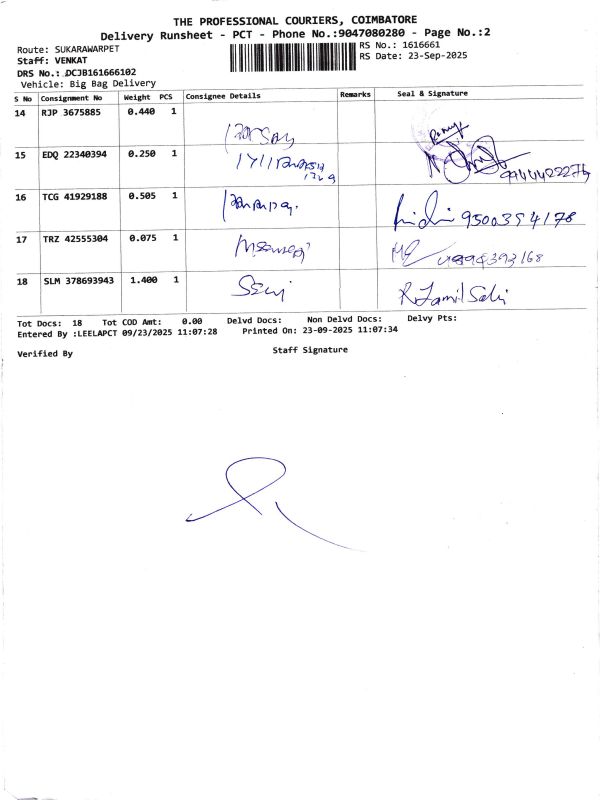 THE PROFESSIONAL COURIERS, COIMBATORE
Delivery Runsheet - PCT - Phone No.:9047080280 - Page No.:2
Route: SUKARAWARPET
RS No.: 1616661
Staff: VENKAT
RS Date: 23-Sep-2025
DRS No.: DCJB161666102
Vehicle: Big Bag Delivery
S No Consignment No Weight PCS Consignee Details Remarks Seal & Signature
14 RJP 3675885 0.440 1
15 EDQ 22340394 0.250 1
16 TCG 41929188 0.505 1 9500394178
17 TRZ 42555304 0.075 1
18 SLM 378693943 1.400 1 R.Tamil Selvi
Tot Docs: 18 Tot COD Amt: 0.00 Delvd Docs: Non Delvd Docs: Delvy Pts:
Entered By :LEELAPCT 09/23/2025 11:07:28 Printed On: 23-09-2025 11:07:34
Verified By Staff Signature